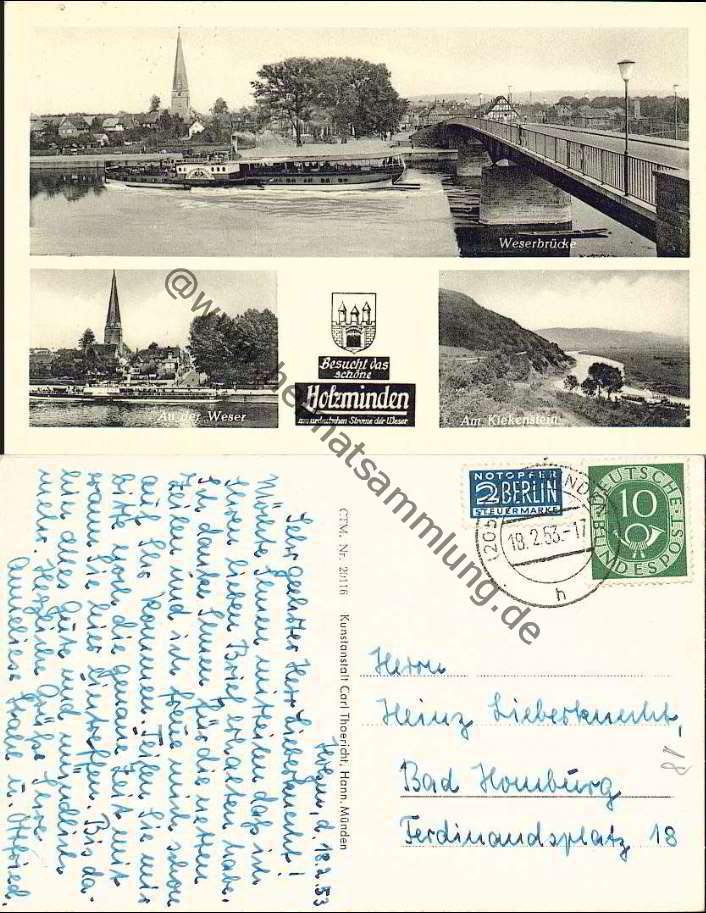 Weserbrücke
An der Weser
Besucht das
schöne
Holzminden
an der Weser
Am Kiekenstein
@www.heimatsammlung.de
NOTOPFER
2 BERLIN
STEUERMARKE
18.2.53.-17
h
10
DEUTSCHE
BUNDESPOST
CTM. Nr. 20116 Kunstanstalt Carl Thoericht, Hann. Münden
Holzm, d. 18.2.53
Sehr geehrter Herr Lieberknecht!
Möchte Ihnen mitteilen daß ich
Ihren lieben Brief erhalten habe.
Ich danke Ihnen für die netten
Zeilen und ich freue mich schon
auf Ihr Kommen. Teilen Sie mir
bitte noch die genaue Zeit mit
wann Sie hier eintreffen. Bis da-
hin alles Gute und
Herzliche Grüße Ihre
Anneliese u.
Herrn
Heinz Lieberknecht,
Bad Homburg
Ferdinandsplatz 18